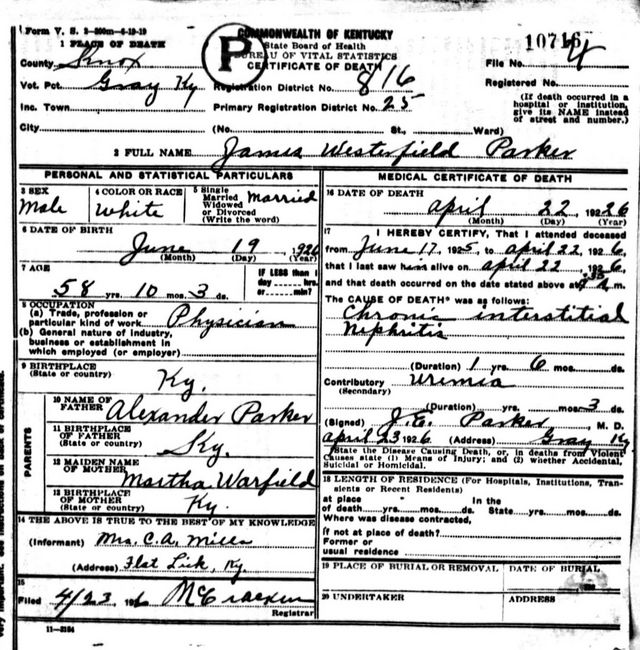 Form V. S. 3-300m-6-19-19
COMMONWEALTH OF KENTUCKY
State Board of Health
BUREAU OF VITAL STATISTICS
CERTIFICATE OF DEATH
P
1 PLACE OF DEATH
County Knox
Vot. Pct. Gray Ky
Inc. Town
City
Registration District No. 816
Primary Registration District No. 25
(No. St., Ward)
File No. 10716
4
Registered No.
(If death occurred in a
hospital or institution,
give its NAME instead
of street and number.)
2 FULL NAME James Westerfield Parker
PERSONAL AND STATISTICAL PARTICULARS
3 SEX
Male
4 COLOR OR RACE
White
5 Single
Married
Widowed
or Divorced
(Write the word)
Married
6 DATE OF BIRTH
June 19 1926
(Month) (Day) (Year)
7 AGE
58 yrs. 10 mos. 3 ds.
IF LESS than 1
day hrs.
or min?
8 OCCUPATION
(a) Trade, profession or
particular kind of work Physician
(b) General nature of industry,
business or establishment in
which employed (or employer)
9 BIRTHPLACE
(State or country) Ky.
PARENTS
10 NAME OF
FATHER Alexander Parker
11 BIRTHPLACE
OF FATHER
(State or country) Ky.
12 MAIDEN NAME
OF MOTHER Martha Warfield
13 BIRTHPLACE
OF MOTHER
(State or country) Ky.
14 THE ABOVE IS TRUE TO THE BEST OF MY KNOWLEDGE
(Informant) Mrs. C. A. Mills
(Address) Flat Lick, Ky.
15
Filed 4/23 1926 McCracken
Registrar
11-3184
MEDICAL CERTIFICATE OF DEATH
16 DATE OF DEATH
april 22 1926
(Month) (Day) (Year)
17 I HEREBY CERTIFY, That I attended deceased
from June 17, 1925, to april 22, 1926,
that I last saw him alive on april 22, 1926,
and that death occurred on the date stated above at m.
The CAUSE OF DEATH* was as follows:
Chronic interstitial
Nephritis
(Duration) 1 yrs. 6 mos. ds.
Contributory Uremia
(Secondary)
(Duration) yrs. mos. 3 ds.
(Signed) J. E. Parker, M. D.
april 23 1926 (Address) Gray Ky
*State the Disease Causing Death, or, in deaths from Violent
Causes state (1) Means of Injury; and (2) whether Accidental,
Suicidal or Homicidal.
18 LENGTH OF RESIDENCE (For Hospitals, Institutions, Tran-
sients or Recent Residents)
at place In the
of death yrs. mos. ds. State yrs. mos. ds.
Where was disease contracted,
if not at place of death?
Former or
usual residence
19 PLACE OF BURIAL OR REMOVAL
DATE OF BURIAL
20 UNDERTAKER
ADDRESS